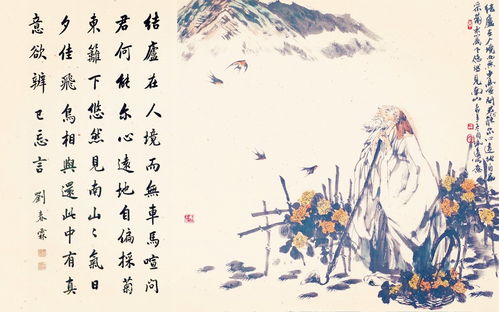 結廬在人境而無車馬喧問
君何能尔心遠地自偏採菊
東籬下悠然見南山〻氣日
夕佳飛鳥相與還此中有真
意欲辨已忘言
劉春霖
结廬在人境而無車馬喧問君能尔心遠地自偏
采菊東籬下悠然見南山